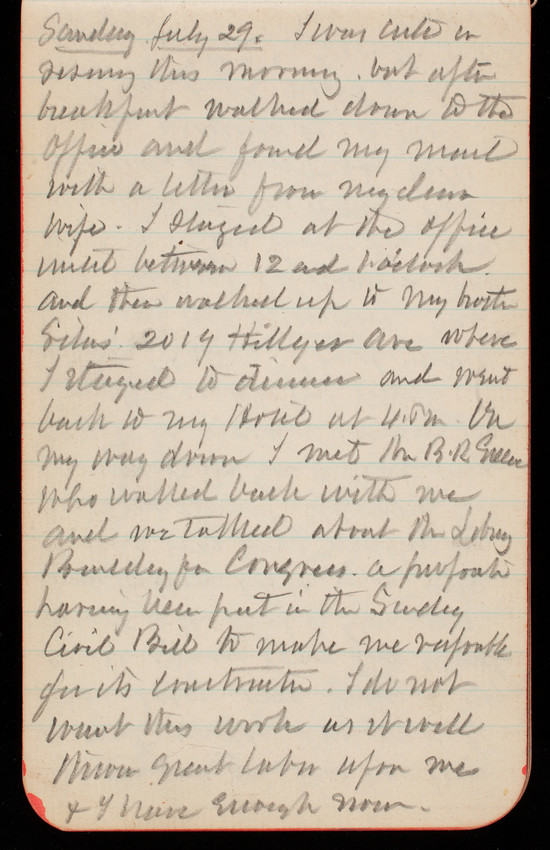 Sunday July 29. I was late in
rising this morning. but after
breakfast walked down to the
Office and found my mail
with a letter from my dear
wife. I stayed at the office
until between 12 and 1 o'clock.
and then walked up to my brother
Silas' 2014 Hillyer Ave where
I stayed to dinner and went
back to my Hotel at 4. P.m. On
my way down I met Mr B.R. Green
who walked back with me
and we talked about the Library
Building for Congress. a proposition
having been put in the Sunday
Civil Bill to make me responsible
for its construction. I do not
want this work as it will
throw great labor upon me
& I have enough now.